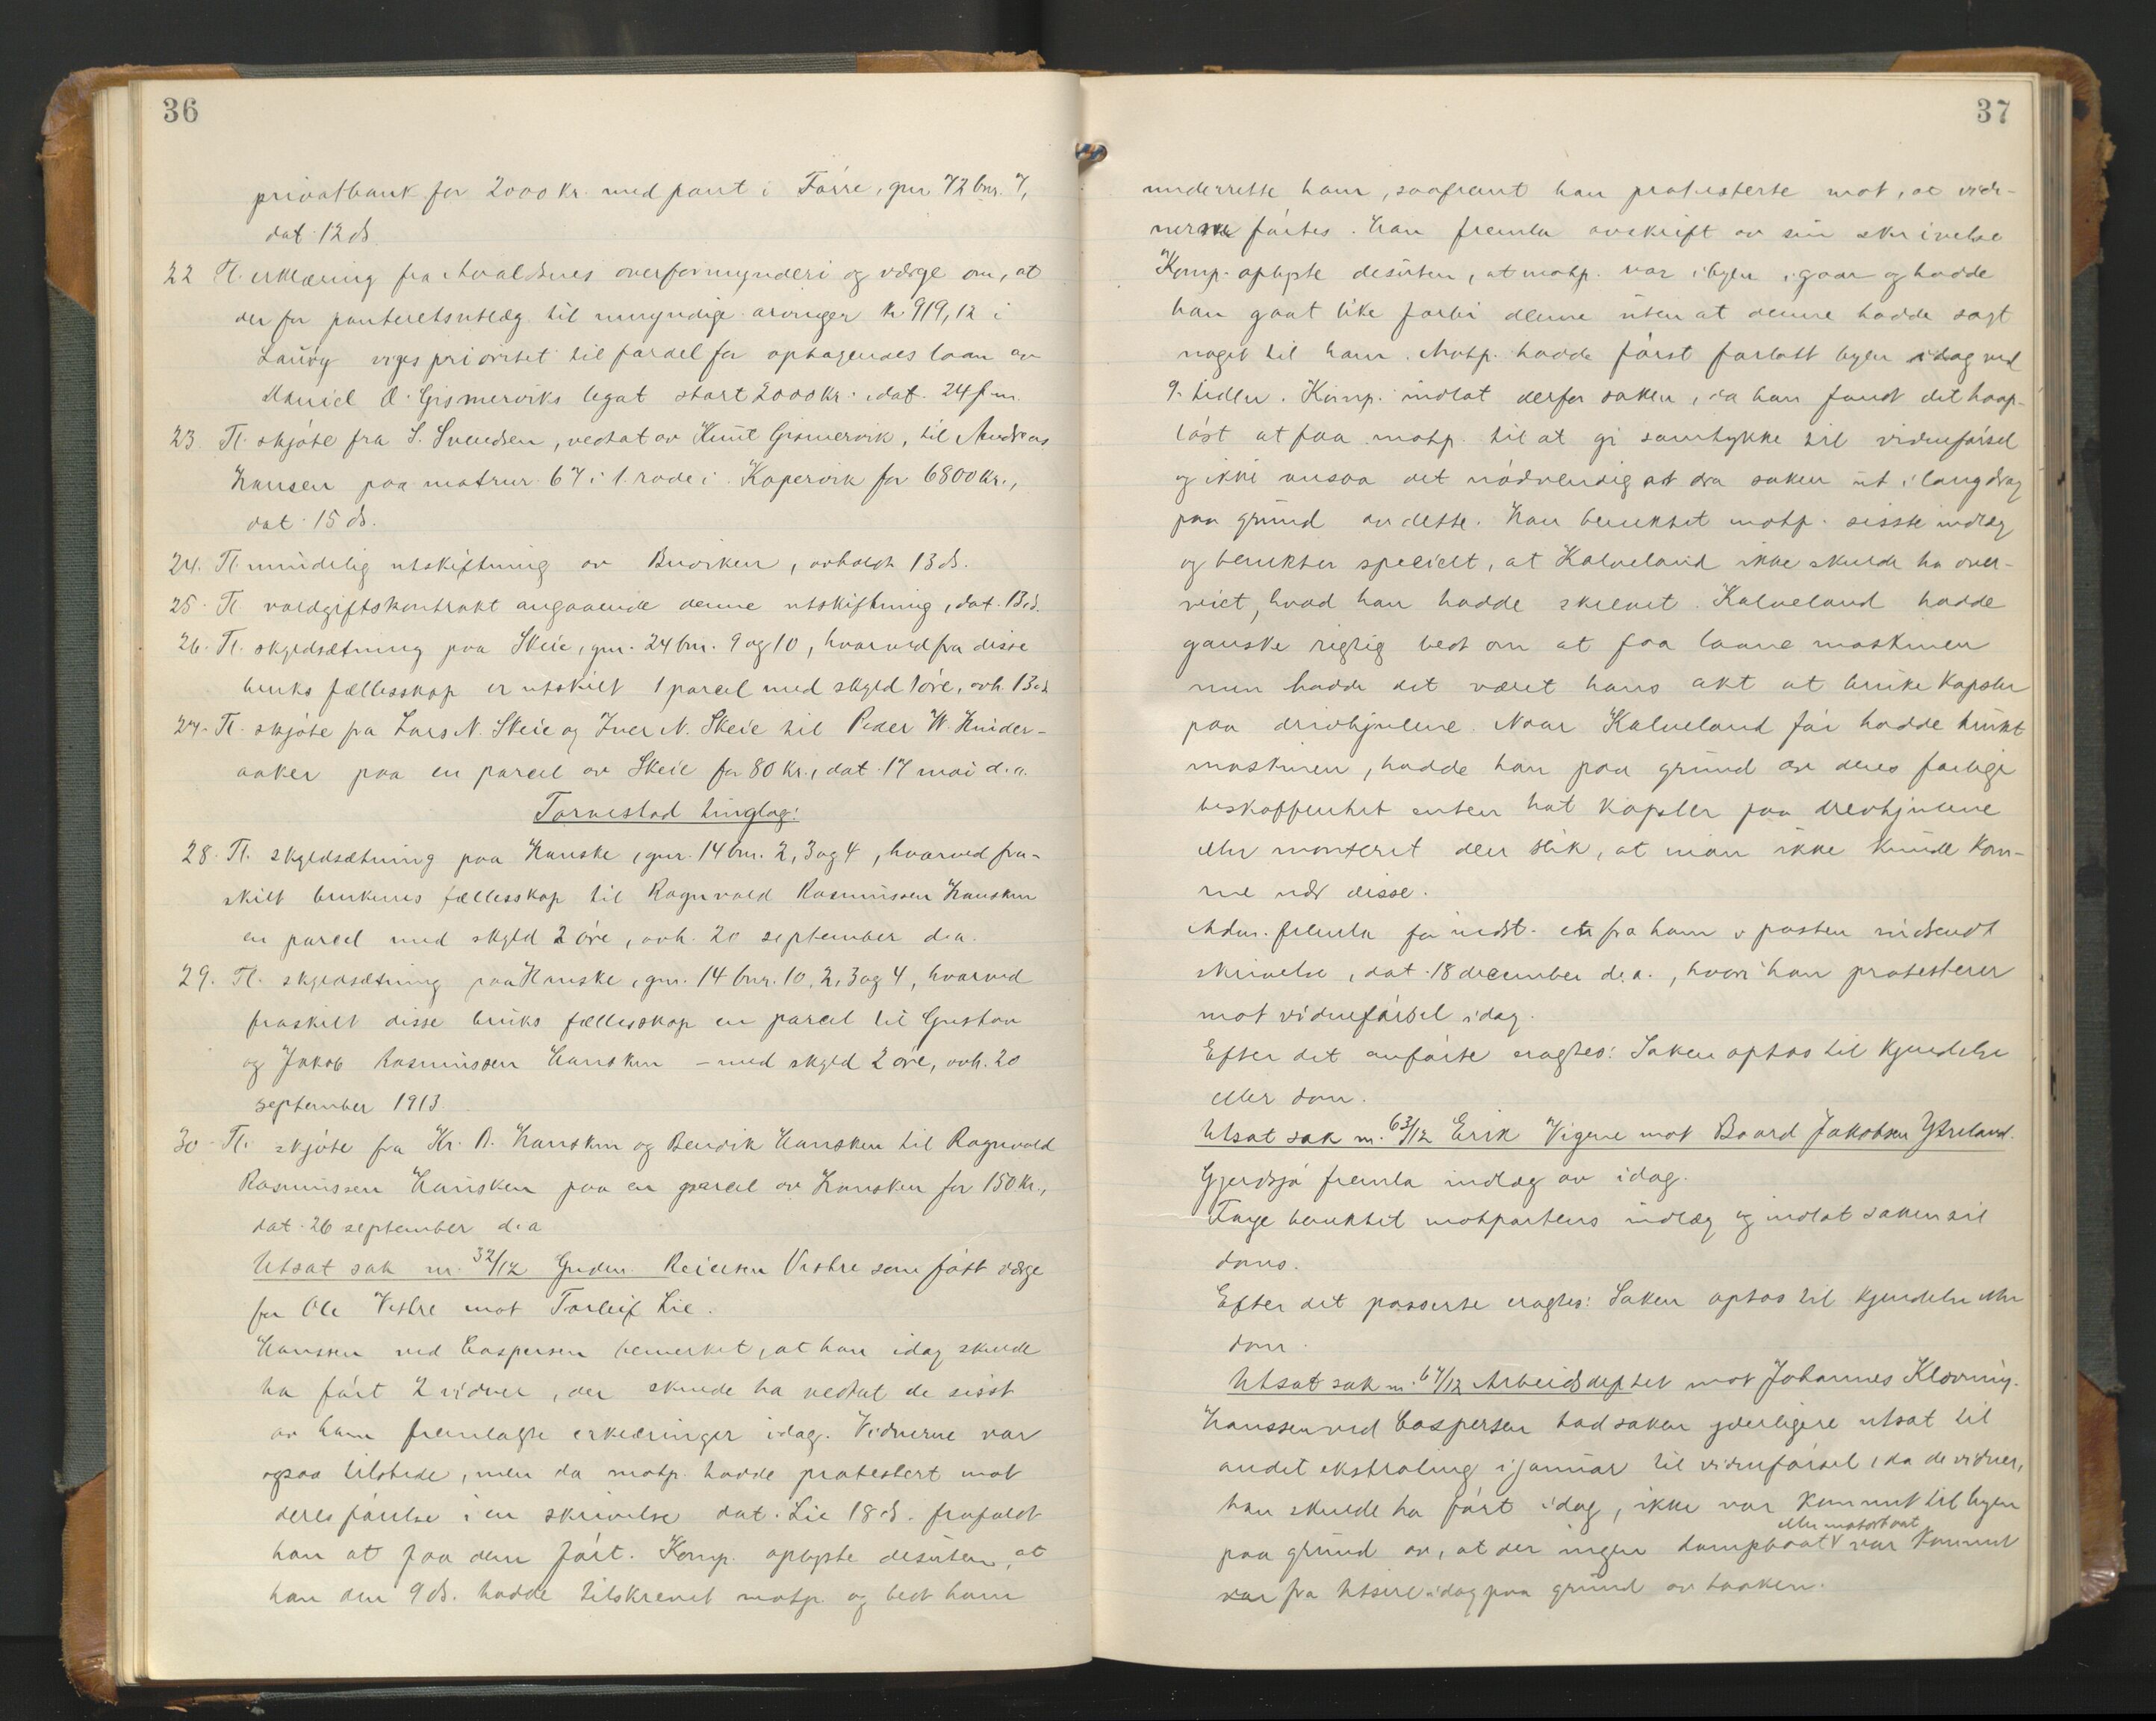 36
privatbank for 2000 kr. med pant i Førre, gnr 72 bnr. 7,
dat 12 ds.
22 Tl. erklæring fra Avaldsnes overformynderi og værge om, at
der for panteretsutlæg til umyndige arvinger kr 919,12 i
viges prioritet til fordel for optagendes laan av
Daniel O. Gismerviks legat stort 2000 kr. dat. 24 f.m.
23. Tl. skjøte fra S. Svendsen, vedtat av Knut Gismervik, til Andreas
Hansen paa matrnr. 67 i 1. rode i Kopervik for 6800 kr.,
dat 15 ds.
24. Tl. mindelig utskiftning av Buviken, avholdt 13 ds.
25. Tl. voldgiftskontrakt angaaende denne utskiftning, dat. 13 ds.
26. Tl. skyldsætning paa Skeie, gnr. 24 bnr. 9 og 10, hvorved fra disse
bruks fællesskap er utskilt 1 parcel med skyld 1 øre, avh. 13 ds
27. Tl. skjøte fra Lars N. Skeie og Iver N. Skeie til Peder W. Kinder-
aaker paa en parcel av Skeie for 80 kr., dat. 17 mai d.a.
Torvestad tinglag:
28. Tl. skyldsætning paa Hanske, gnr. 14 bnr. 2, 3 og 4, hvorved fra-
skilt brukenes fællesskap til Ragnvald Rasmussen Hansken
en parcel med skyld 2 øre, avh. 20 september d.a.
29. Tl. skyldsætning paa Hanske, gnr. 14 bnr. 10, 2, 3 og 4, hvorved
fraskilt disse bruks fællesskap en parcel til Gustav
og Jakob Rasmussen Hansken – med skyld 2 øre, avh. 20
september 1913
30. Tl. skjøte fra Kr. B. Hansken og Bendik Hansken til Ragnvald
Rasmussen Hansken paa en parcel av Hansken for 150 kr.,
dat. 26 september d.a
Utsat sak nr. 32/12 Gudm. Reiersen Vestre som fast værge
for Ole Vestre mot Torleif Lie.
Hanssen ved Caspersen bemerket, at han idag skulde
ha ført 2 vidner, der skulde ha vedtat de sisst
av ham fremlagte erklæringer idag. Vidnerne var
ogsaa tilstede, men da motp. hadde protestert mot
deres førelse i en skrivelse dat. Lie 18 ds. frafaldt
han at faa dem ført. Komp. oplyste desuten, at
han den 9 ds. hadde tilskrevet motp. og bedt ham
37
underrette ham, saafremt han protesterte mot, at vid-
nerne førtes. Han fremla avskrift av sin skrivelse
Komp. oplyste desuten, at motp. var i byen igaar og hadde
han gaat like forbi denne uten at denne hadde sagt
noget til ham. Motp. hadde først forlatt byen idag ved
9-tiden. Komp. indlot derfor saken, da han fandt det haap-
løst at faa motp. til at gi samtykke til vidneførsel
og ikke ansaa det nødvendig at dra saken ut i langdrag
paa grund av dette. Han benektet motp. sisste indlæg
og benekter specielt, at Kalveland ikke skulde ha over-
veiet, hvad han hadde skrevet. Kalveland hadde
ganske rigtig bedt om at faa laane maskinen
men hadde det været hans akt at bruke kapsler
paa drivhjulene. Naar Kalveland før hadde brukt
maskinen, hadde han paa grund av deres farlige
beskaffenhet enten hat kapsler paa drevhjulene
eller monteret den slik, at man ikke kunde kom-
me nær disse.
Adm. fremla for indst. et fra ham v posten indsendt
skrivelse, dat. 18 december d.a., hvori han protesterer
mot vidneførsel idag.
Efter det anførte eragtes: Saken optas til kjendelse
eller dom.
Utsat sak nr. 63/12 Erik Vigene mot Baard Jakobsen Ytreland.
Gjerdsjø fremla indlæg av idag.
Faye benektet motpartens indlæg og indlot saken til
doms.
Efter det passerte eragtes: Saken optas til kjendelse eller
dom.
Utsat sak nr. 67/12 Arbeidsdeptet mot Johannes Klovning.
Hanssen ved Caspersen bad saken yderligere utsat til
andet ekstrating i januar til vidneførsel, da de vidner,
han skulde ha ført idag, ikke var kommet til byen
paa grund av, at der ingen dampbaat eller motorbaat var kommet
var fra Utsire idag paa grund av taaken.